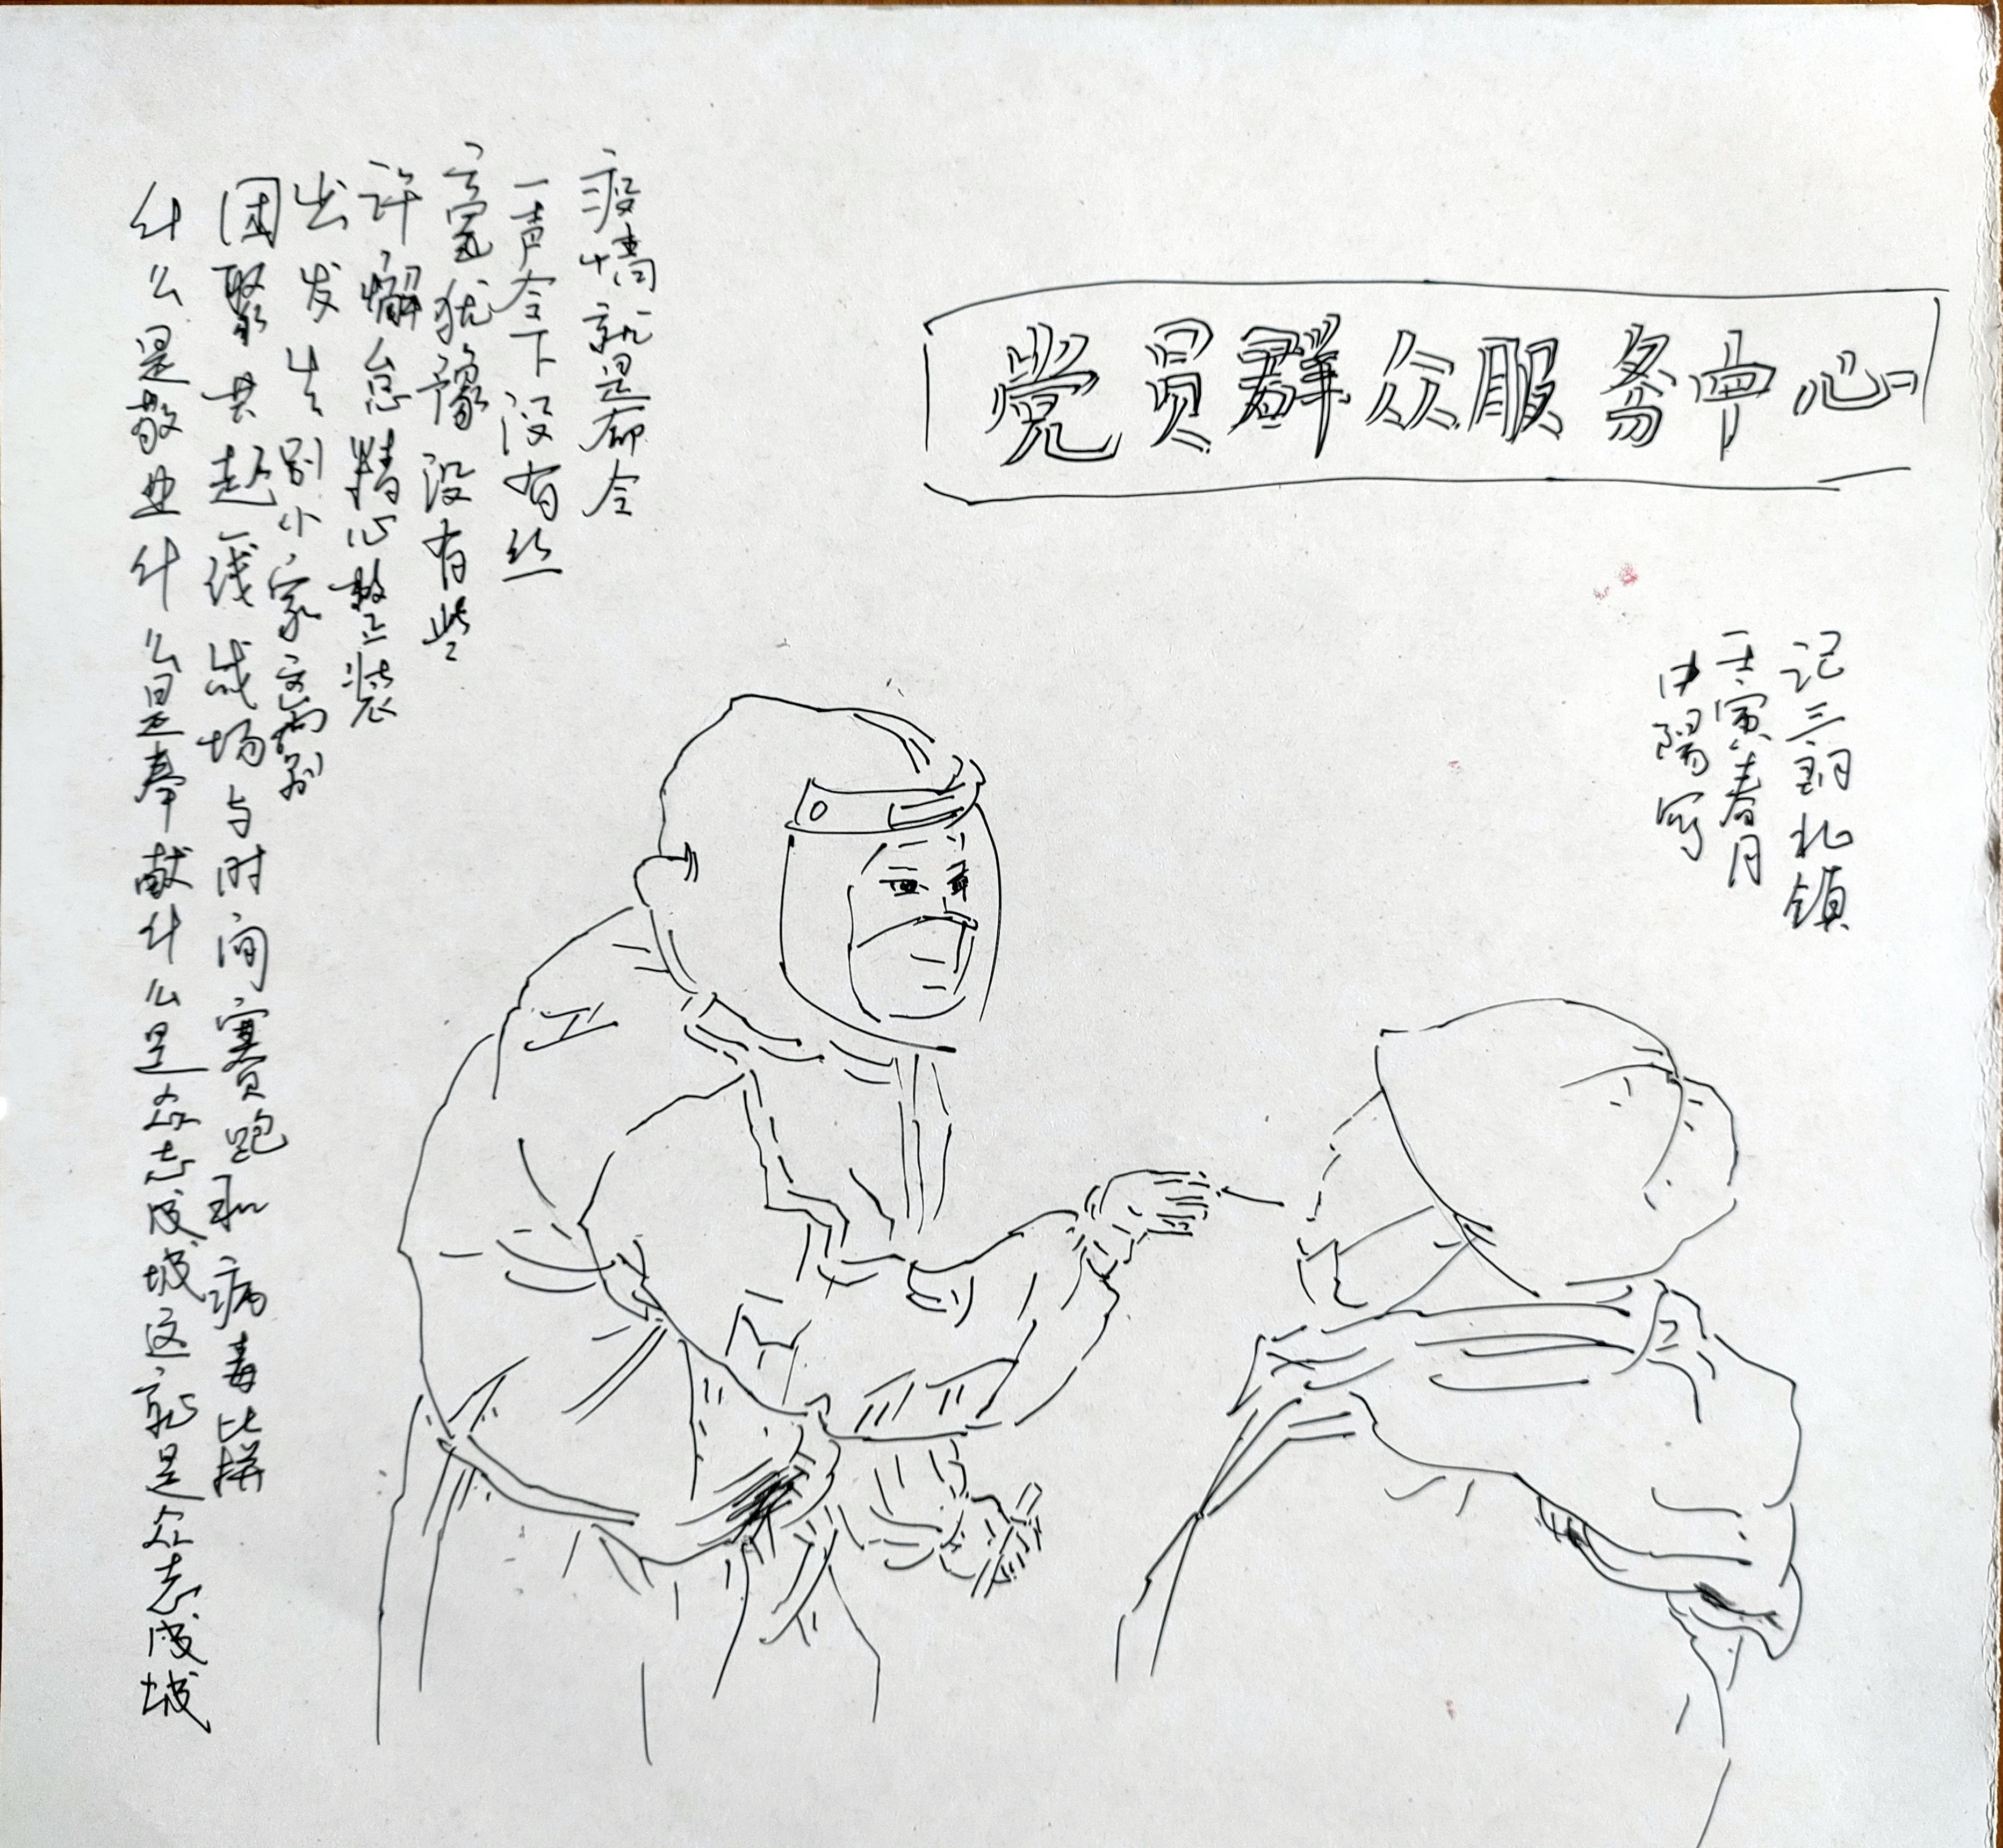 党员群众服务中心
记三朝北镇
壬寅春月
中阳写
疫情就是命令
一声令下没有丝
毫犹豫没有些
许懈怠精心整装
出发告别小家
团聚共赴一线战场与时间赛跑和病毒比拼
什么是敬业什么是奉献什么是众志成城这就是众志成城